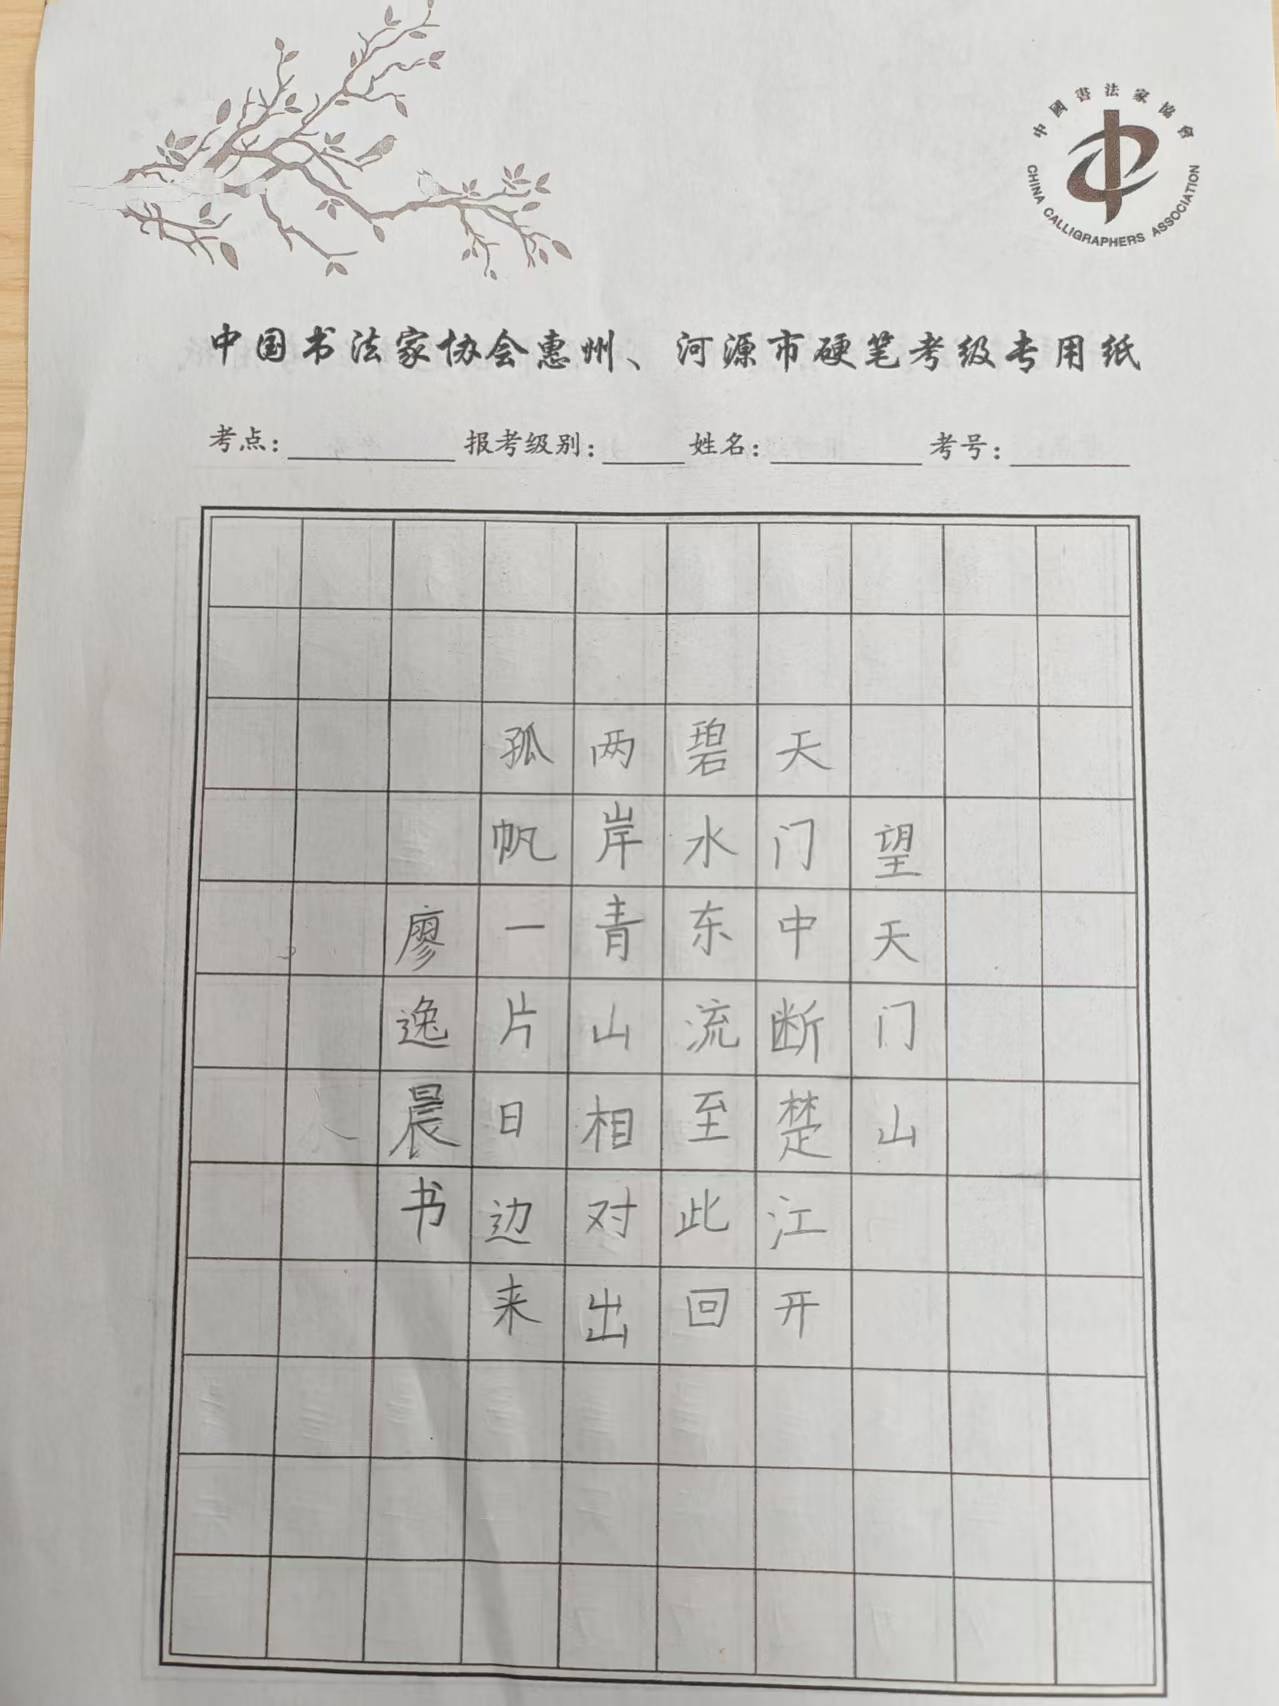 中國書法家協會
CHINA CALLIGRAPHERS ASSOCIATION
中国书法家协会惠州、河源市硬笔考级专用纸
考点: 报考级别: 姓名: 考号:
望天门山
天门中断楚江开
碧水东流至此回
两岸青山相对出
孤帆一片日边来
廖逸晨书